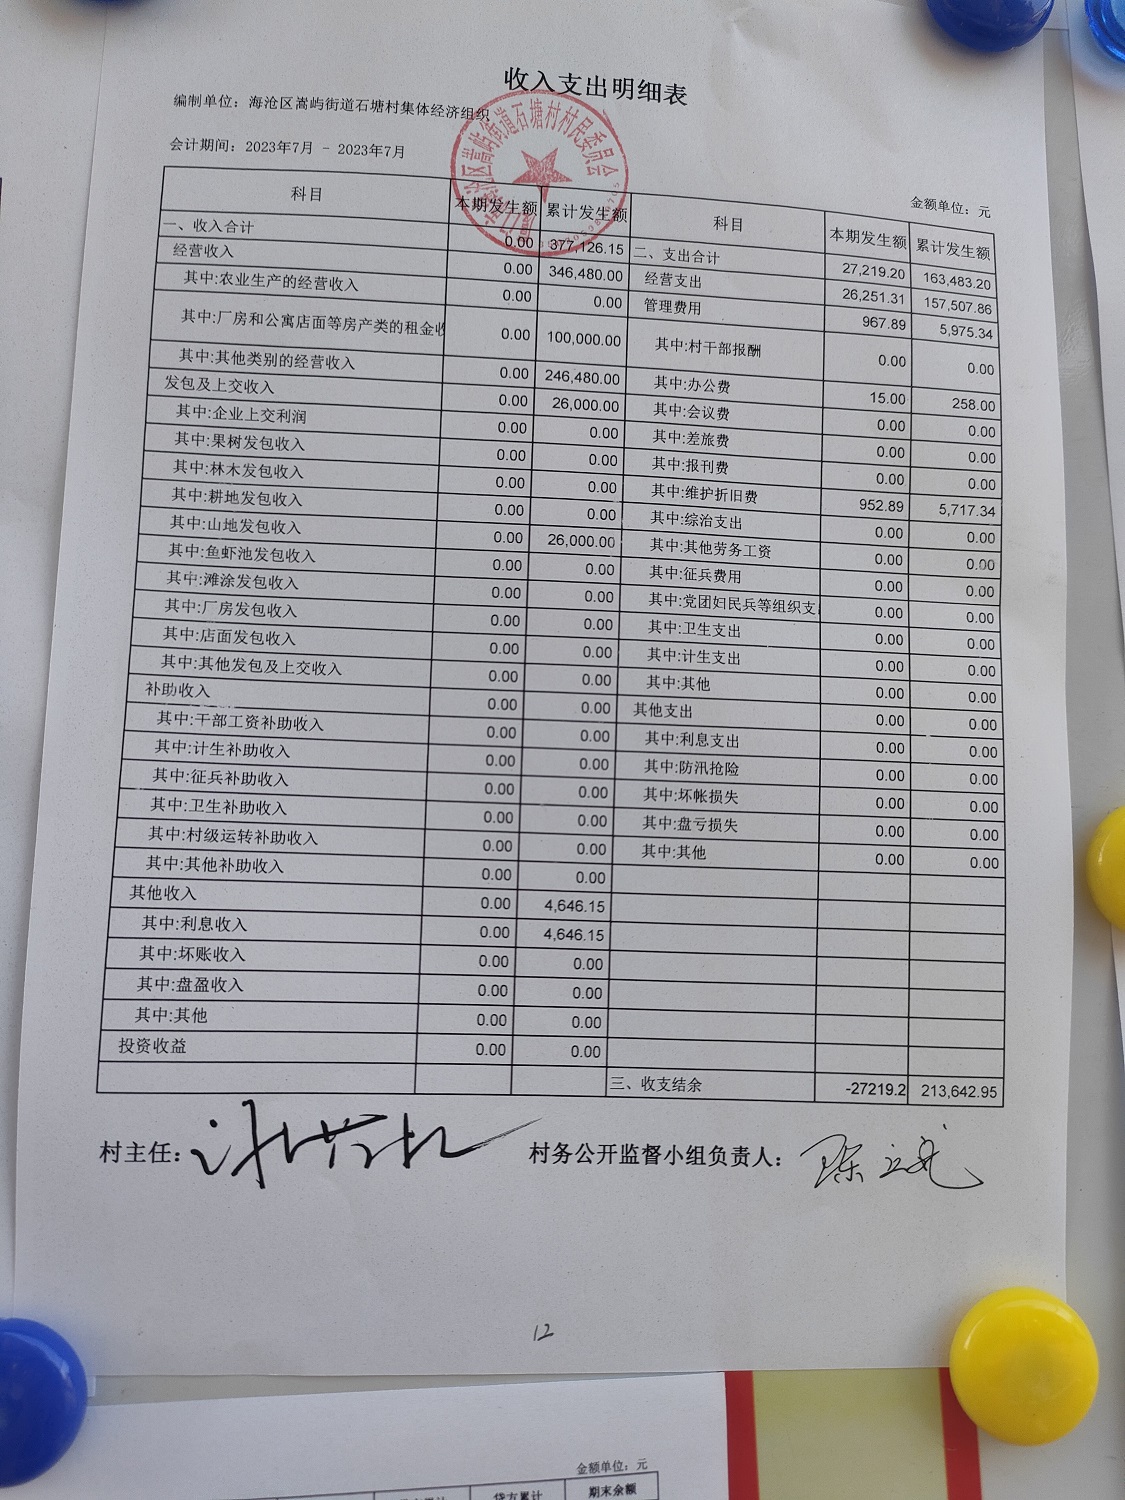 收入支出明细表
编制单位：海沧区嵩屿街道石塘村集体经济组织
会计期间：2023年7月 - 2023年7月
金额单位：元
科目 本期发生额 累计发生额 科目 本期发生额 累计发生额
一、收入合计 0.00 377,126.15 二、支出合计 27,219.20 163,483.20
经营收入 0.00 346,480.00 经营支出 26,251.31 157,507.86
其中:农业生产的经营收入 0.00 0.00 管理费用 967.89 5,975.34
其中:厂房和公寓店面等房产类的租金收 0.00 100,000.00 其中:村干部报酬 0.00 0.00
其中:其他类别的经营收入 0.00 246,480.00 其中:办公费 15.00 258.00
发包及上交收入 0.00 26,000.00 其中:会议费 0.00 0.00
其中:企业上交利润 0.00 0.00 其中:差旅费 0.00 0.00
其中:果树发包收入 0.00 0.00 其中:报刊费 0.00 0.00
其中:林木发包收入 0.00 0.00 其中:维护折旧费 952.89 5,717.34
其中:耕地发包收入 0.00 0.00 其中:综治支出 0.00 0.00
其中:山地发包收入 0.00 26,000.00 其中:其他劳务工资 0.00 0.00
其中:鱼虾池发包收入 0.00 0.00 其中:征兵费用 0.00 0.00
其中:滩涂发包收入 0.00 0.00 其中:党团妇民兵等组织支 0.00 0.00
其中:厂房发包收入 0.00 0.00 其中:卫生支出 0.00 0.00
其中:店面发包收入 0.00 0.00 其中:计生支出 0.00 0.00
其中:其他发包及上交收入 0.00 0.00 其中:其他 0.00 0.00
补助收入 0.00 0.00 其他支出 0.00 0.00
其中:干部工资补助收入 0.00 0.00 其中:利息支出 0.00 0.00
其中:计生补助收入 0.00 0.00 其中:防汛抢险 0.00 0.00
其中:征兵补助收入 0.00 0.00 其中:坏帐损失 0.00 0.00
其中:卫生补助收入 0.00 0.00 其中:盘亏损失 0.00 0.00
其中:村级运转补助收入 0.00 0.00 其中:其他 0.00 0.00
其中:其他补助收入 0.00 0.00
其他收入 0.00 4,646.15
其中:利息收入 0.00 4,646.15
其中:坏账收入 0.00 0.00
其中:盘盈收入 0.00 0.00
其中:其他 0.00 0.00
投资收益 0.00 0.00
三、收支结余 -27219.2 213,642.95
村主任： 村务公开监督小组负责人：
12
金额单位：元
贷方累计 期末余额